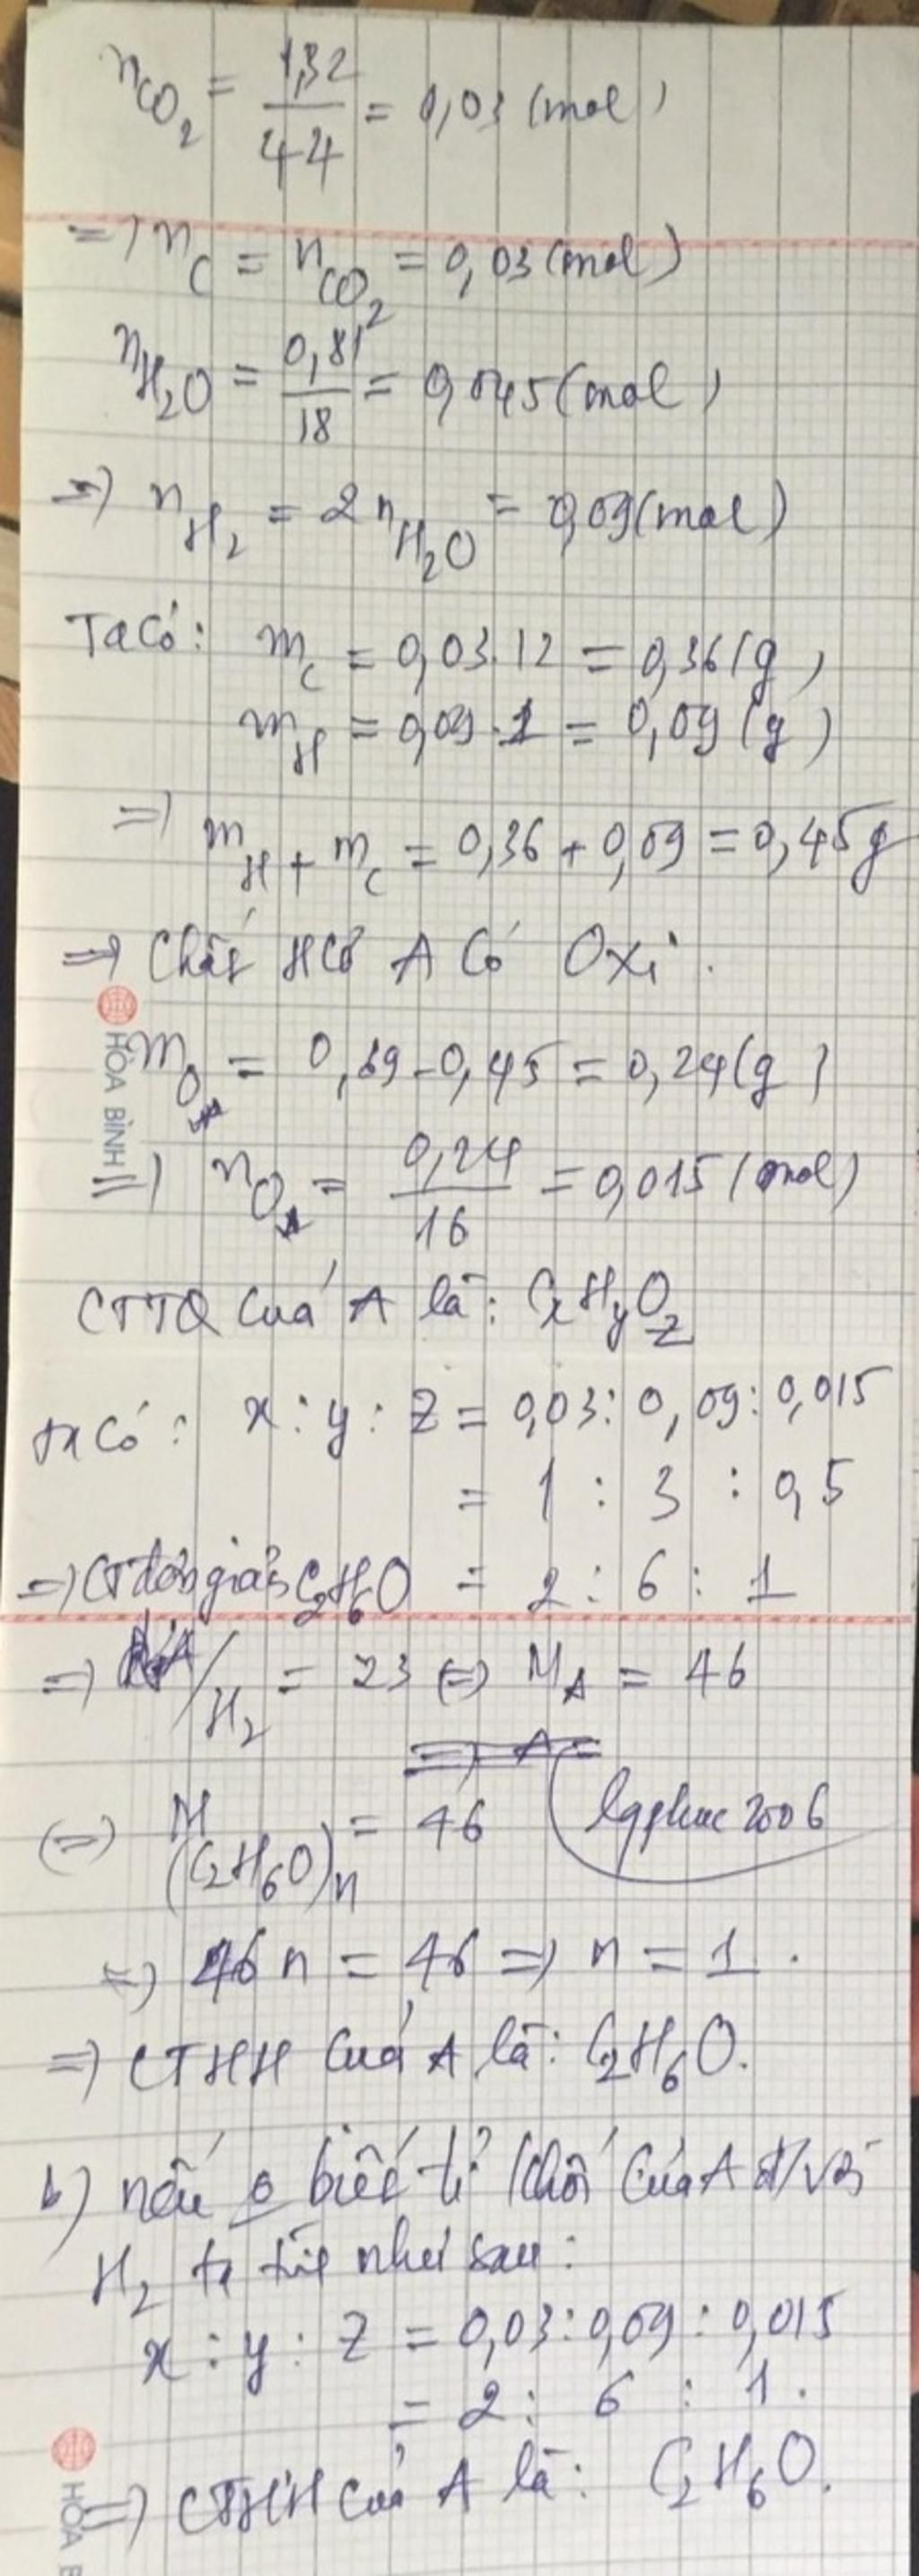 nCO₂ = 1,32/44 = 0,03 (mol)
=> nC = nCO₂ = 0,03 (mol)
nH₂O = 0,81/18 = 0,045 (mol)
=> nH₂ = 2nH₂O = 0,09 (mol)
Ta có: mC = 0,03.12 = 0,36 (g)
mH = 0,09.1 = 0,09 (g)
=> mH + mC = 0,36 + 0,09 = 0,45g
=> Chất HCơ A Có Oxi.
mO = 0,69 - 0,45 = 0,24 (g)
=> nO = 0,24/16 = 0,015 (mol)
CTTQ của A là: CxHyOz
ta có: x : y : z = 0,03 : 0,09 : 0,015
= 1 : 3 : 0,5
=> CT đơn giản C₂H₆O = 2 : 6 : 1
=> dA/H₂ = 23 <=> MA = 46
<=> M(C₂H₆O)n = 46
lqphuc 2006
=> 46n = 46 => n = 1.
=> CTHH của A là: C₂H₆O.
b) nếu o biết tỉ khối của A đ/với
H₂ ta làm như sau:
x : y : z = 0,03 : 0,09 : 0,015
= 2 : 6 : 1.
=> CTHH của A là: C₂H₆O.
HÒA BÌNH